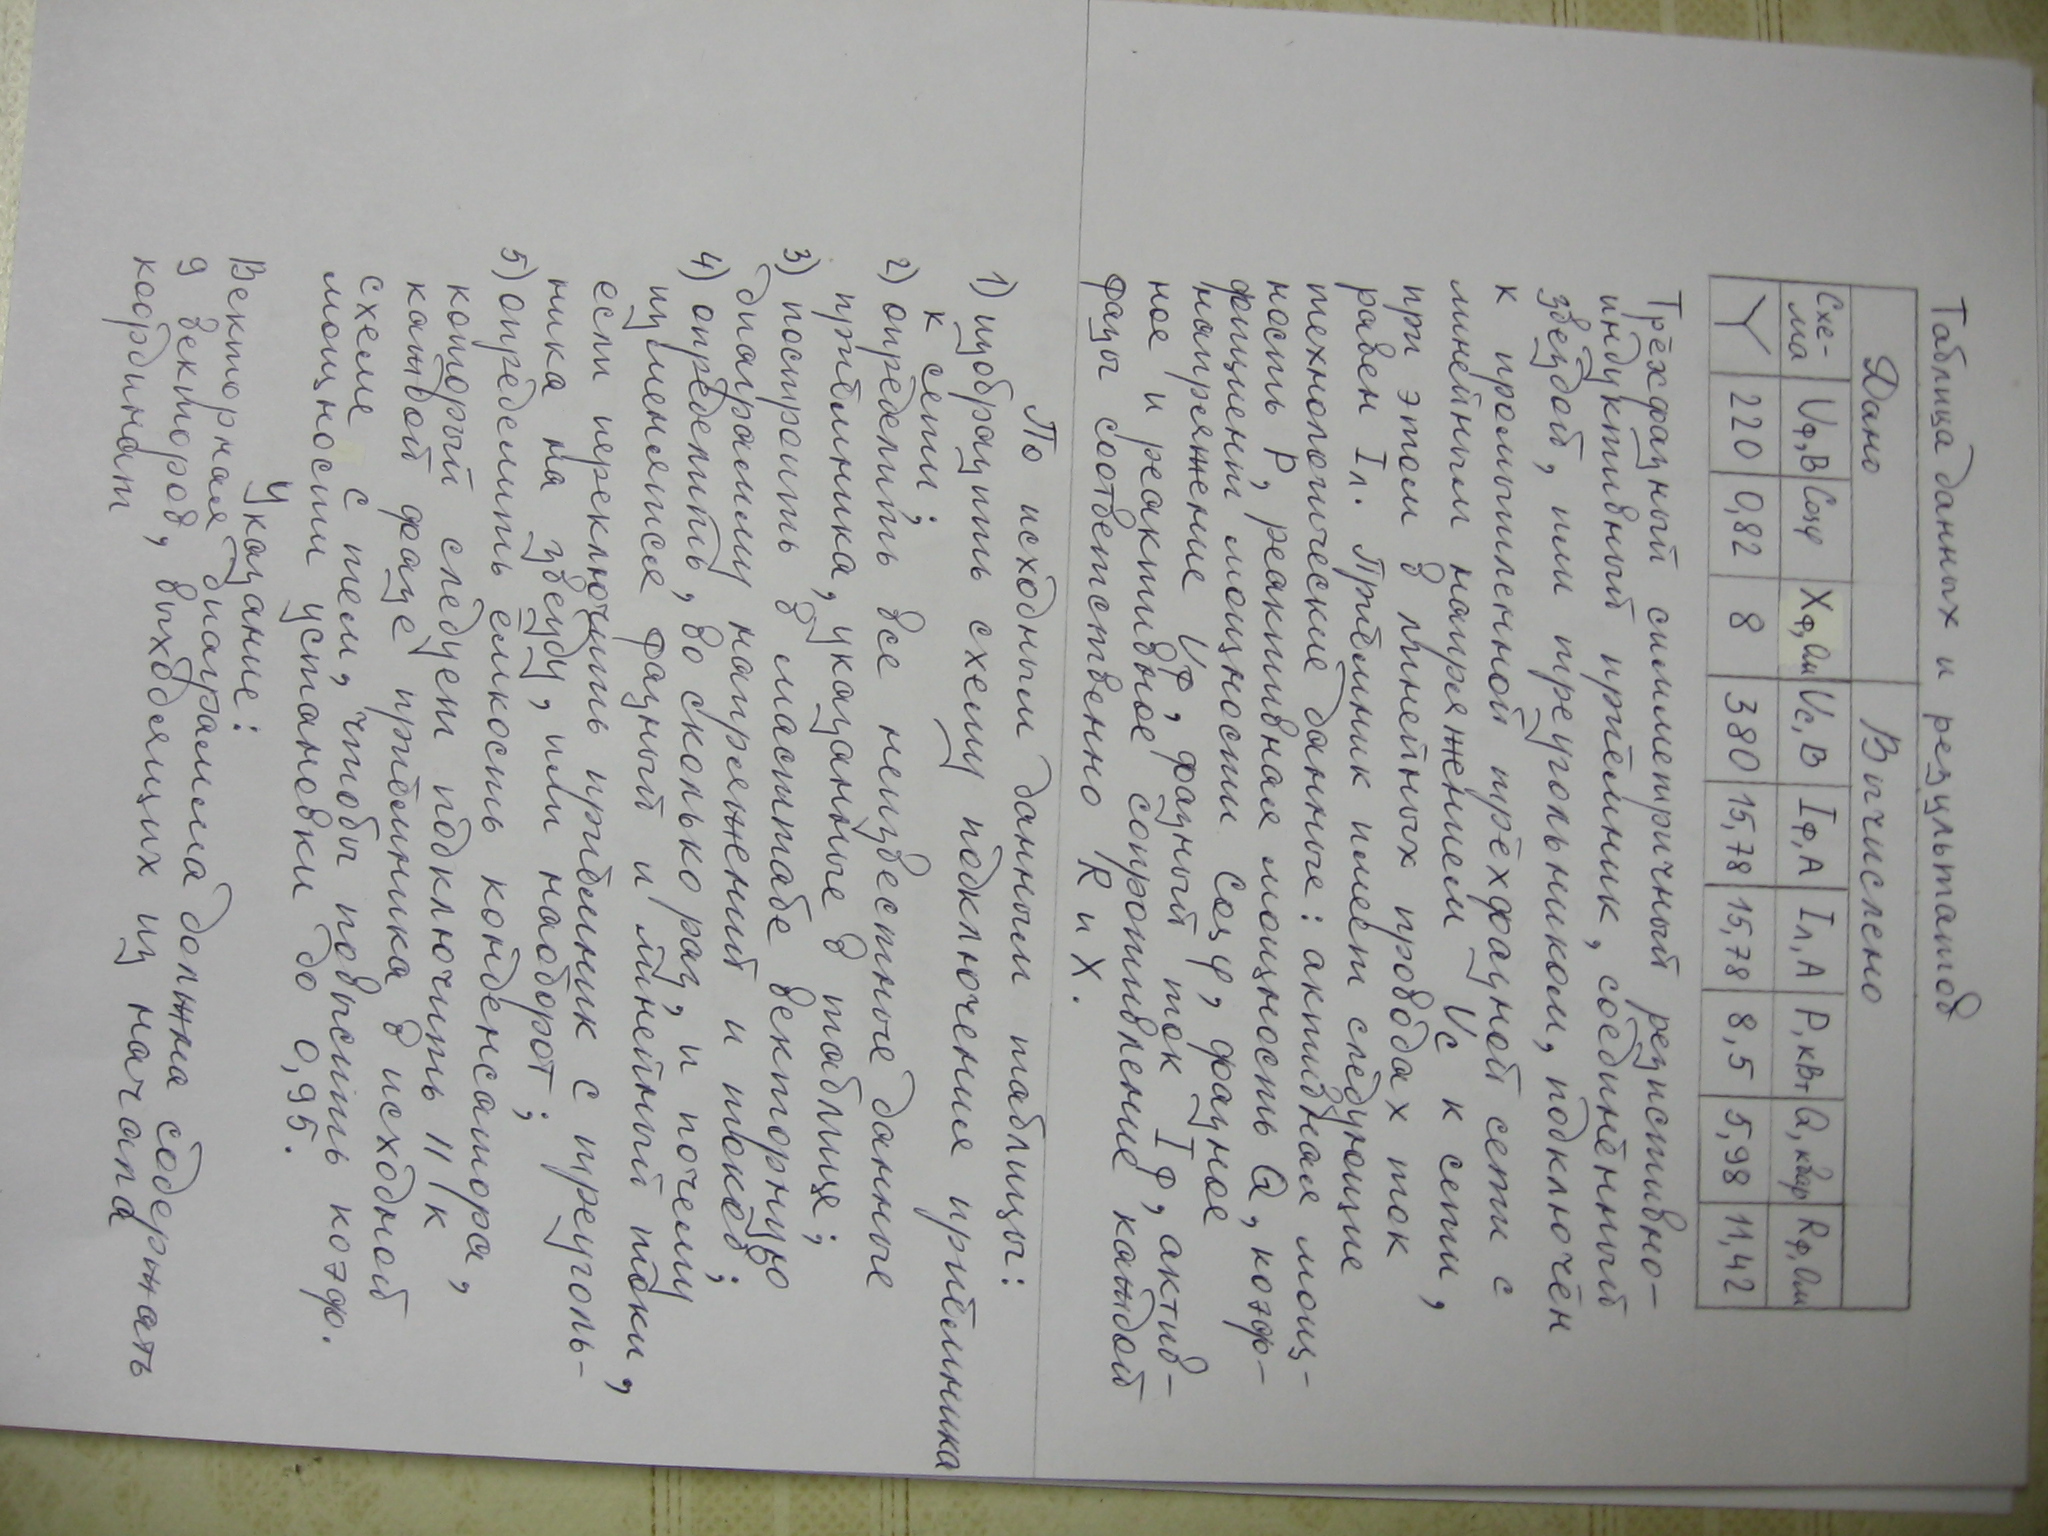 Таблица данных и результатов
Дано Вычислено
Схе- Uф,В Cosφ Xф,Ом Uс,В Iф,А Iл,А P,кВт Q,кВар Rф,Ом
ма
Y 220 0,82 8 380 15,78 15,78 8,5 5,98 11,42
Трёхфазный симметричный резистивно-
индуктивный приёмник, соединённый
звездой, или треугольником, подключён
к промышленной трёхфазной сети с
линейным напряжением Uс к сети,
при этом в линейных проводах ток
равен Iл. Приёмник имеет следующие
технологические данные: активная мощ-
ность P, реактивная мощность Q, коэф-
фициент мощности Cosφ, фазное
напряжение Uф, фазный ток Iф, актив-
ное и реактивное сопротивление каждой
фазы соответственно R и X.
По исходным данным таблицы:
1) изобразить схему подключения приёмника
к сети;
2) определить все неизвестные данные
приёмника, указанные в таблице;
3) построить в масштабе векторную
диаграмму напряжений и токов;
4) определить, во сколько раз, и почему
изменятся фазный и линейный токи,
если переключить приёмник с треуголь-
ника на звезду, или наоборот;
5) определить ёмкость конденсатора,
который следует подключить || к
каждой фазе приёмника в исходной
схеме с тем, чтобы повысить коэф.
мощности установки до 0,95.
Указание:
Векторная диаграмма должна содержать
9 векторов, выходящих из начала
координат